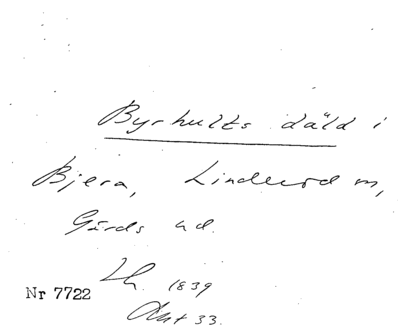 Byrhults däld i
Bjera, Linderöd m,
Gärds hd.
Lh. 1839
Nr 7722
Akt 33.